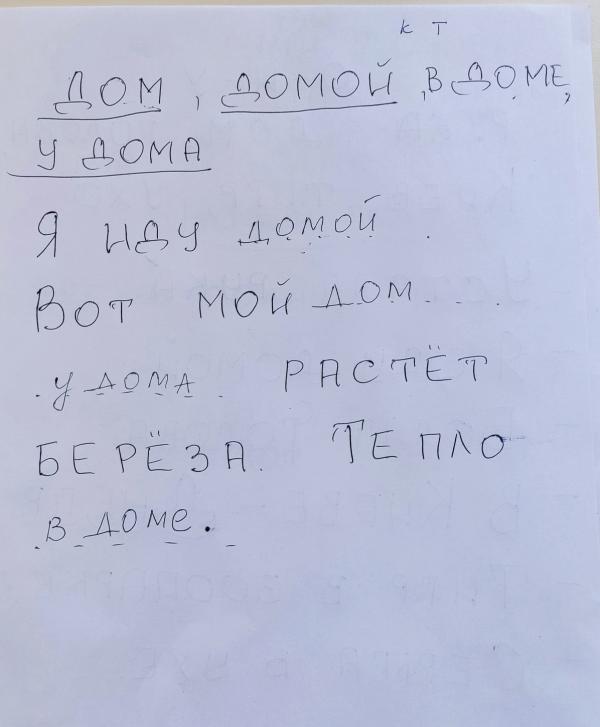 К Т
ДОМ, ДОМОЙ, В ДОМЕ,
У ДОМА
Я ИДУ ДОМОЙ.
ВОТ МОЙ ДОМ...
. У ДОМА. РАСТЁТ
БЕРЁЗА. ТЕПЛО
. В ДОМЕ.